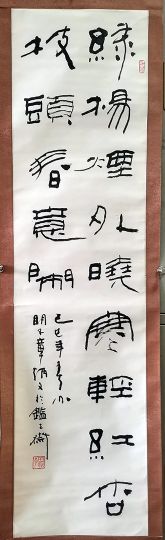 綠楊煙外曉寒輕紅杏
枝頭春意鬧
己巳年春